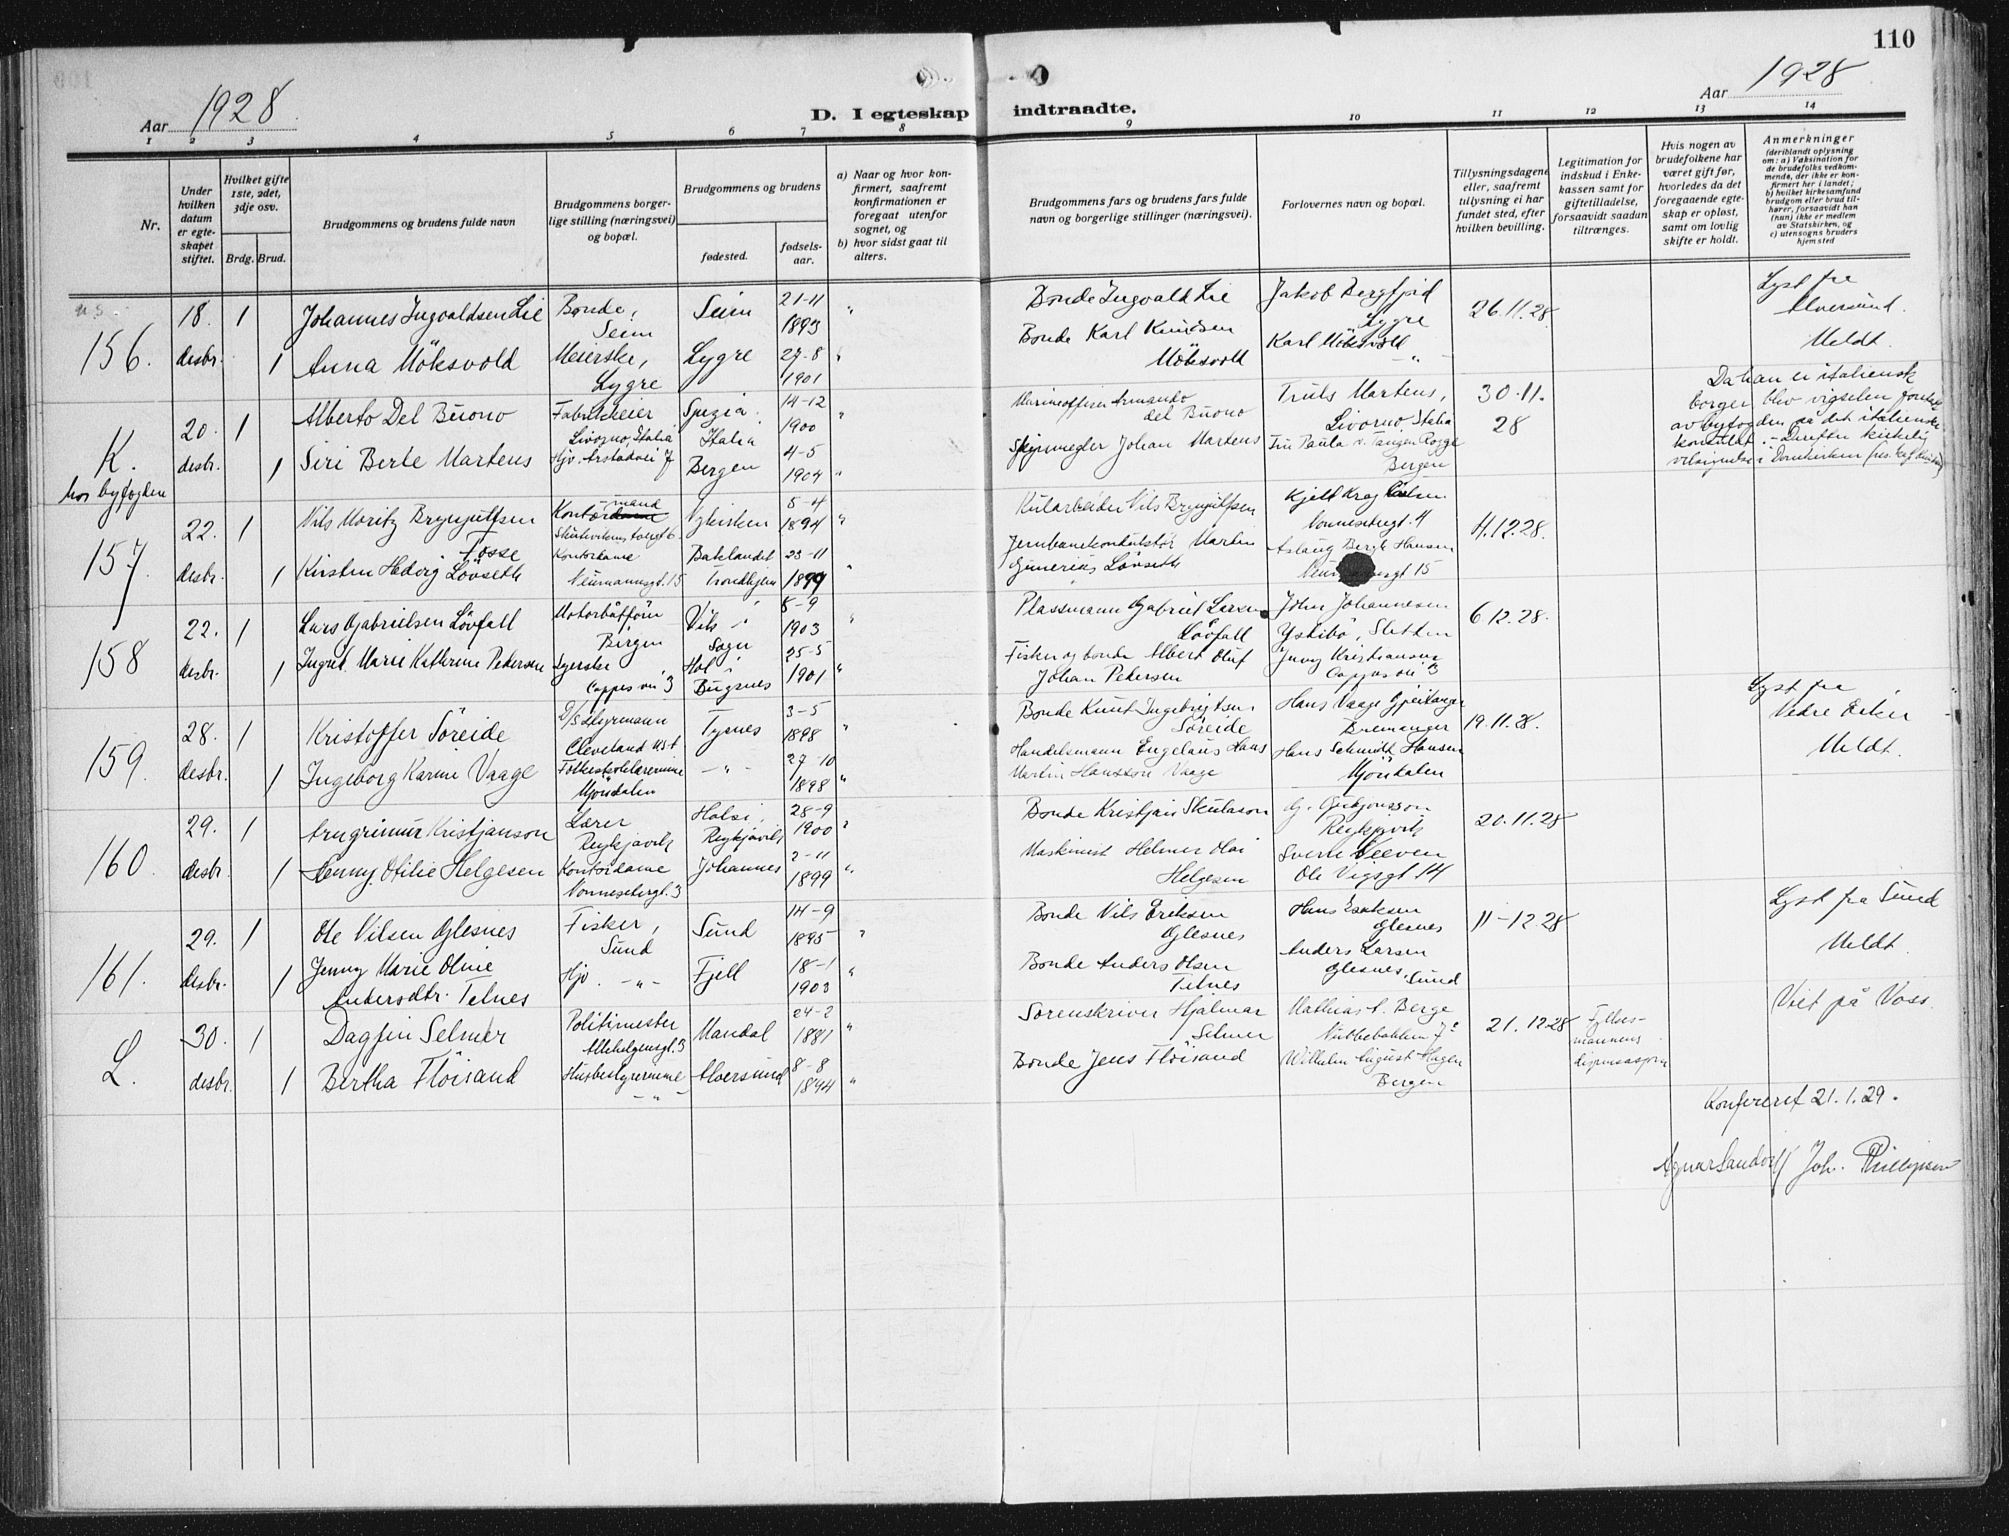 110
Aar 1928
D. I egteskap indtraadte.
Aar 1928
1 2 3 4 5 6 7 8 9 10 11 12 13 14
Nr.
Under hvilken datum er egteskapet stiftet.
Hvilket gifte 1ste, 2det, 3dje osv.
Brdg. Brud.
Brudgommens og brudens fulde navn
Brudgommens borgerlige stilling (næringsvei) og bopæl.
Brudgommens og brudens
fødested.
fødselsaar.
a) Naar og hvor konfirmert, saafremt konfirmationen er foregaat utenfor sognet, og
b) hvor sidst gaat til alters.
Brudgommens fars og brudens fars fulde navn og borgerlige stillinger (næringsvei).
Forlovernes navn og bopæl.
Tillysningsdagene eller, saafremt tillysning ei har fundet sted, efter hvilken bevilling.
Legitimation for indskud i Enkekassen samt for giftetilladelse, forsaavidt saadan tiltrænges.
Hvis nogen av brudefolkene har været gift før, hvorledes da det foregaaende egteskap er opløst, samt om lovlig skifte er holdt.
Anmerkninger
(deriblandt oplysning om: a) Vaksination for de brudefolks vedkommende, der ikke er konfirmert her i landet; b) hvilket kirkesamfund brudgom eller brud tilhører, forsaavidt han (hun) ikke er medlem av Statskirken, og c) utensogns bruders hjemsted
156. 18. desbr. 1 Johannes Ingvaldsen Lie Bonde, Seim Seim 21-11 1893 " Bonde Ingvald Lie Jakob Bergfjord Lygre 26.11.28. Lyst fra Alversund. Meldt.
1 Anna Möksvold Meierske, Lygre Lygre 27-8 1901 " Bonde Karl Knudsen Möksvold Karl Möksvold -"-
K. hos byfogden 20. desbr. 1 Alberto Del Buono Fabrikkeier Livorno, Italia Spezia Italia 14-12 1900 " Marineoffiser Armando del Buono Truls Martens, Livorno, Italia 30.11. 28 Da han er italiensk borger blev vigselen foretat av byfogden på det italienske konsulat. - Derefter kirkelig velsignelse i Domkirken
1 Siri Berle Martens Hjv. Årstadvei 7 Bergen 4-5 1904 " Skipsmegler Johan Martens Fru Paula v. Tangen Bergen
157. 22. desbr. 1 Nils Moritz Brynjulfsen Fosse Kontormand 5-4 1894 " Kularbeider Nils Brynjulfsen Kjell Krag Nonnesetergt. 4 4.12.28.
1 Kirsten Hedvig Lövseth Kontordame Neumannsgt. 15 Baklandet Trondhjem 23-11 1899 " Jernbanekonduktør Martin Lövseth Aslaug Bergh Hansen 15
158 22. desbr. 1 Lars Gabrielsen Lövfall Motorbåtfører Bergen Vik i Sogn 8-9 1903 " Plassmann Gabriel Larsen Lövfall John Johannesen Ystebö, Sletten 6.12.28.
1 Ingrid Marie Kathrine Pedersen Syerske Cappes vei 3 Hol i Bugsnes 25-5 1901 " Fisker og bonde Albert Oluf Johan Pedersen Jenny Kristiansen Cappes vei 3
159. 28. desbr. 1 Kristoffer Söreide D/s styrmann Cleveland USA Tysnes 3-5 1898 " Bonde Knut Ingebrigtsen Söreide Hans Vaage Bremanger 19.11.28. Lyst fra Nedre Eiker Meldt.
1 Ingeborg Karine Vaage Folkeskolelærerinne Mjöndalen -"- 27-10 1898 " Handelsmann Engelaus Hans Martin Hansson Vaage Hans Schmidt Hansen Mjöndalen
160. 29. desbr. 1 Arngrimur Kristjanson Lærer Reykjavik Holsi, Reykjavik 28-9 1900 " Bonde Kristjan Skulason G. Gudjonsson Reykjavik 20.11.28
1 Henny Otilie Helgesen Kontordame Nonnesetergt. 3 Johannes 2-11 1899 " Maskinist Helmer Olai Helgesen Sverre Kleeven Ole Vigsgt 14
161. 29. desbr. 1 Ole Nilsen Glesnes Fisker, Sund Sund 14-9 1895 " Bonde Nils Eriksen Glesnes Hans Eriksen Glesnes 11-12.28 Lyst fra Sund Meldt.
1 Jenny Marie Oline Andersdtr. Telnes Hjv. -"- Fjell 18-1 1903 " Bonde Anders Olsen Telnes Anders Larsen Glesnes, Sund
L. 30. desbr. 1 Dagfin Selmer Politimester Allehelgensgt. 3 Mandal 24-2 1881 " Sorenskriver Hjalmar Selmer Mathias A. Berge Nubbebakken 21.12.28 Fylkesmannens dispensasjon Viet på Voss.
1 Bertha Flöisand Husbestyrerinne -"- Alversund 8-8 1894 " Bonde Jens Flöisand Wilhelm August Hagen Bergen
Konfereret 21.1.29.
Agnar Sandvik Joh. Phillipsen